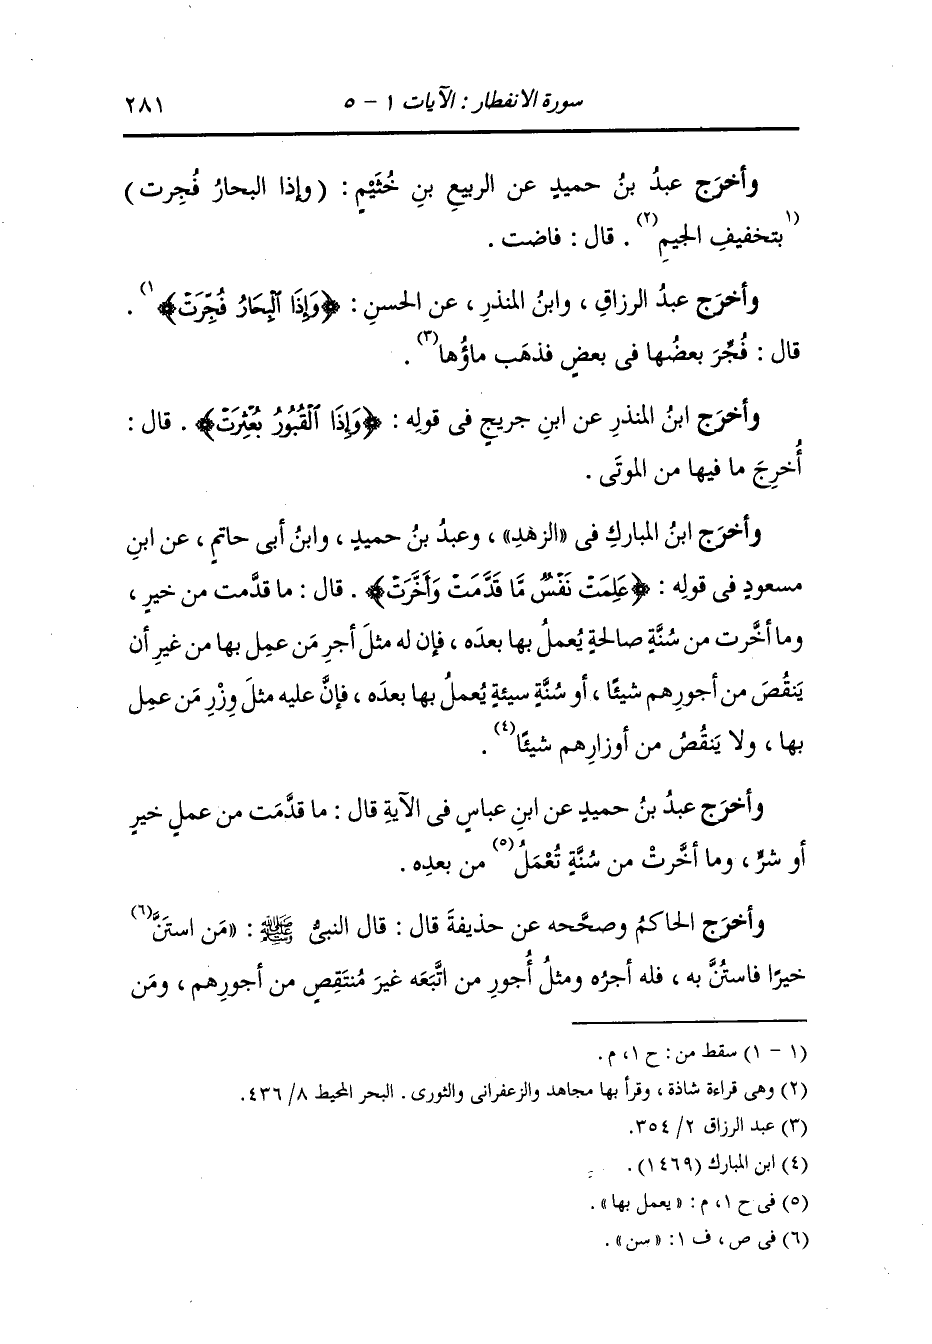 سورة الانفطار : الآيات ١ - ٥ ٢٨١
وأخرَج عبدُ بنُ حميدٍ عن الربيعِ بنِ خُثَيْمٍ : ( وإذا البحارُ فُجِرت )
(١بتخفيفِ الجيمِ(٢) . قال : فاضت .
وأخرَج عبدُ الرزاقِ ، وابنُ المنذرِ ، عن الحسنِ : ﴿وَإِذَا ٱلْبِحَارُ فُجِّرَتْ﴾١) .
قال : فُجِّرَ بعضُها فى بعضٍ فذهَب ماؤُها(٣) .
وأخرَج ابنُ المنذرِ عن ابنِ جريجٍ فى قولِه : ﴿وَإِذَا ٱلْقُبُورُ بُعْثِرَتْ﴾ . قال :
أُخرِجَ ما فيها من الموتَى .
وأخرَج ابنُ المباركِ فى «الزهدِ» ، وعبدُ بنُ حميدٍ ، وابنُ أبى حاتمٍ ، عن ابنِ
مسعودٍ فى قولِه : ﴿عَلِمَتْ نَفْسٌ مَّا قَدَّمَتْ وَأَخَّرَتْ﴾ . قال : ما قدَّمت من خيرٍ ،
وما أخَّرت من سُنَّةٍ صالحةٍ يُعملُ بها بعدَه ، فإن له مثلَ أجرِ مَن عمِل بها من غيرِ أن
يَنقُصَ من أجورِهم شيئًا ، أو سُنَّةٍ سيئةٍ يُعملُ بها بعدَه ، فإنَّ عليه مثلَ وِزْرِ مَن عمِل
بها ، ولا يَنقُصُ من أوزارِهم شيئًا(٤) .
وأخرَج عبدُ بنُ حميدٍ عن ابنِ عباسٍ فى الآيةِ قال : ما قدَّمَت من عملٍ خيرٍ
أو شرٍّ ، وما أخَّرتْ من سُنَّةٍ تُعْمَلُ(٥) من بعدِه .
وأخرَج الحاكمُ وصحَّحه عن حذيفةَ قال : قال النبىُّ ﷺ : «مَن استَنَّ(٦)
خيرًا فاستُنَّ به ، فله أجرُه ومثلُ أُجورِ من اتَّبَعَه غيرَ مُنتَقِصٍ من أجورِهم ، ومَن
(١ - ١) سقط من : ح ١، م .
(٢) وهى قراءة شاذة ، وقرأ بها مجاهد والزعفرانى والثورى . البحر المحيط ٨/ ٤٣٦.
(٣) عبد الرزاق ٢/ ٣٥٤.
(٤) ابن المبارك (١٤٦٩) .
(٥) فى ح ١، م : «يعمل بها» .
(٦) فى ص ، ف ١: «سن» .